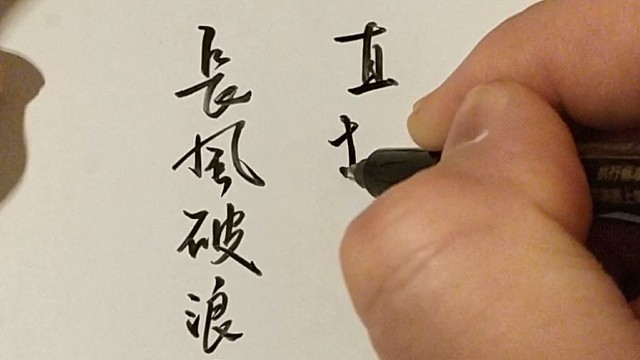 長風破浪
直